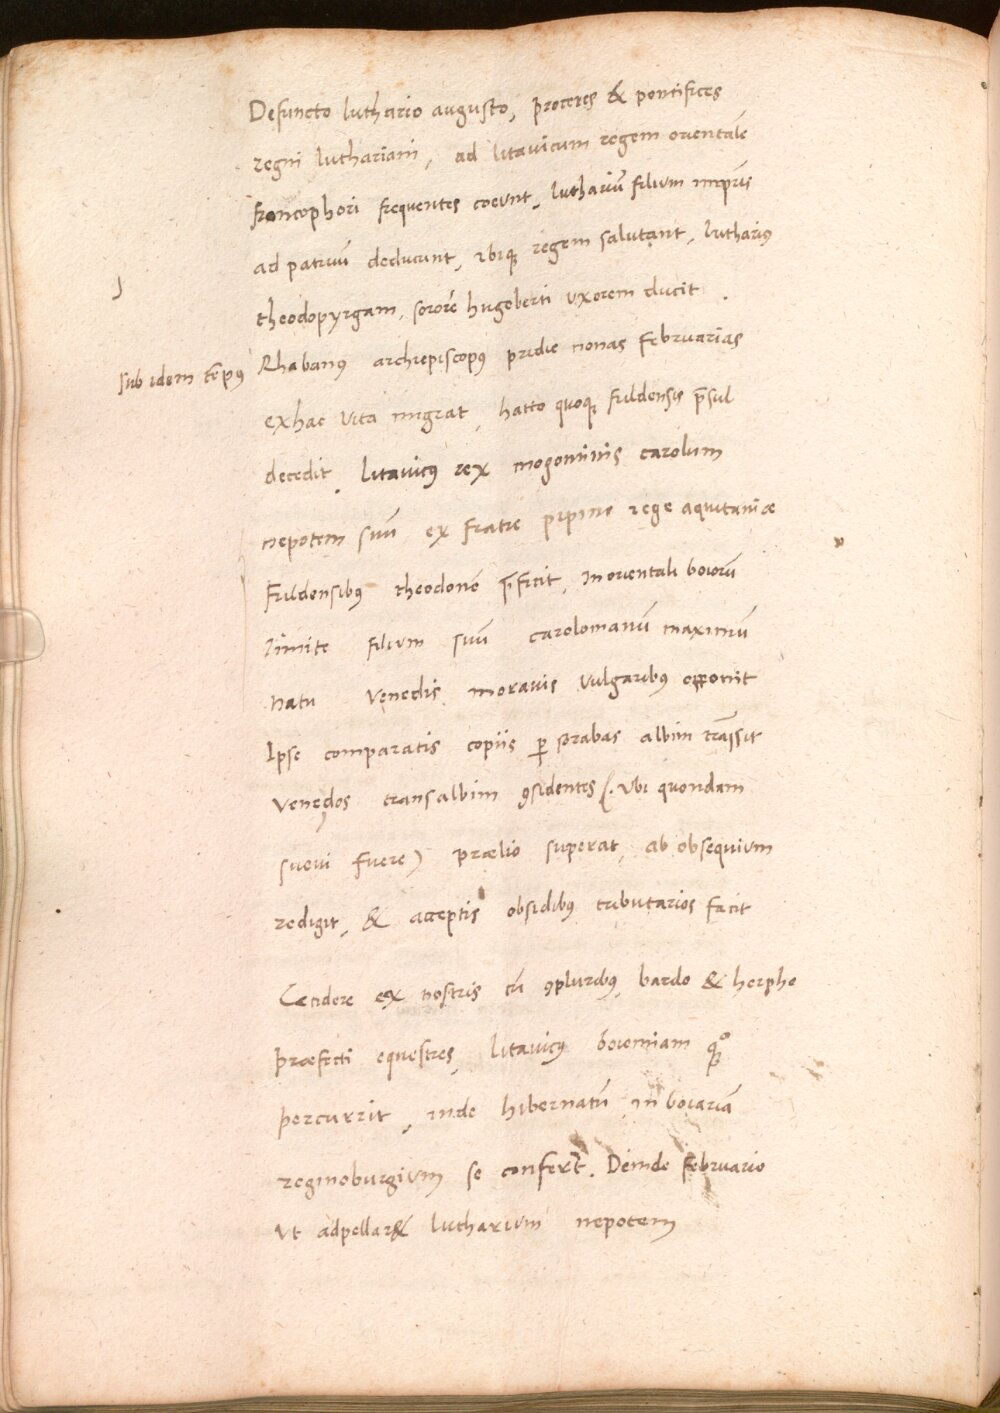 Defuncto luthario augusto, proceres & pontifices
regni luthariani, ad litauicum regem orientalē
francophori frequentes coeunt, lutharium̄ filium imꝑris
ad patruū deducunt, ibiqꝫ regem salutant, lutharius
theodopyrgam, sororē hugoberti uxorem ducit.
sub idem tēpꝰ Rhabanꝰ archiepiscopꝰ pridie nonas februarias
ex hac uita migrat, hatto quoqꝫ fuldensis p̄sul
decedit, litauicꝰ rex mogoninis carolum
nepotem suū ex fratre pipino rege aquitaniæ
Fuldensibꝰ theodonē p̄ficit, in orientali boiorū
limite filium suū carolomanū maximū
natu Venedis morauis Vulgaribꝰ opponit
Ipse comparatis copiis ꝑ sorabas albim trāssit
Venedos transalbim ꝯsidentes (. Vbi quondam
sueui fuere) prælio superat, ab obsequium
redigit, & acceptis obsidibꝰ tributarios facit
Cecidere ex nostris cū ꝯpluribꝰ, bardo & herpho
præfecti equestres, litauicꝰ boiemiam qꝫº
percurrit, inde hibernatū in boiariā
reginoburgium se confert. Deinde februario
Ut adpellar& lutharium nepotem